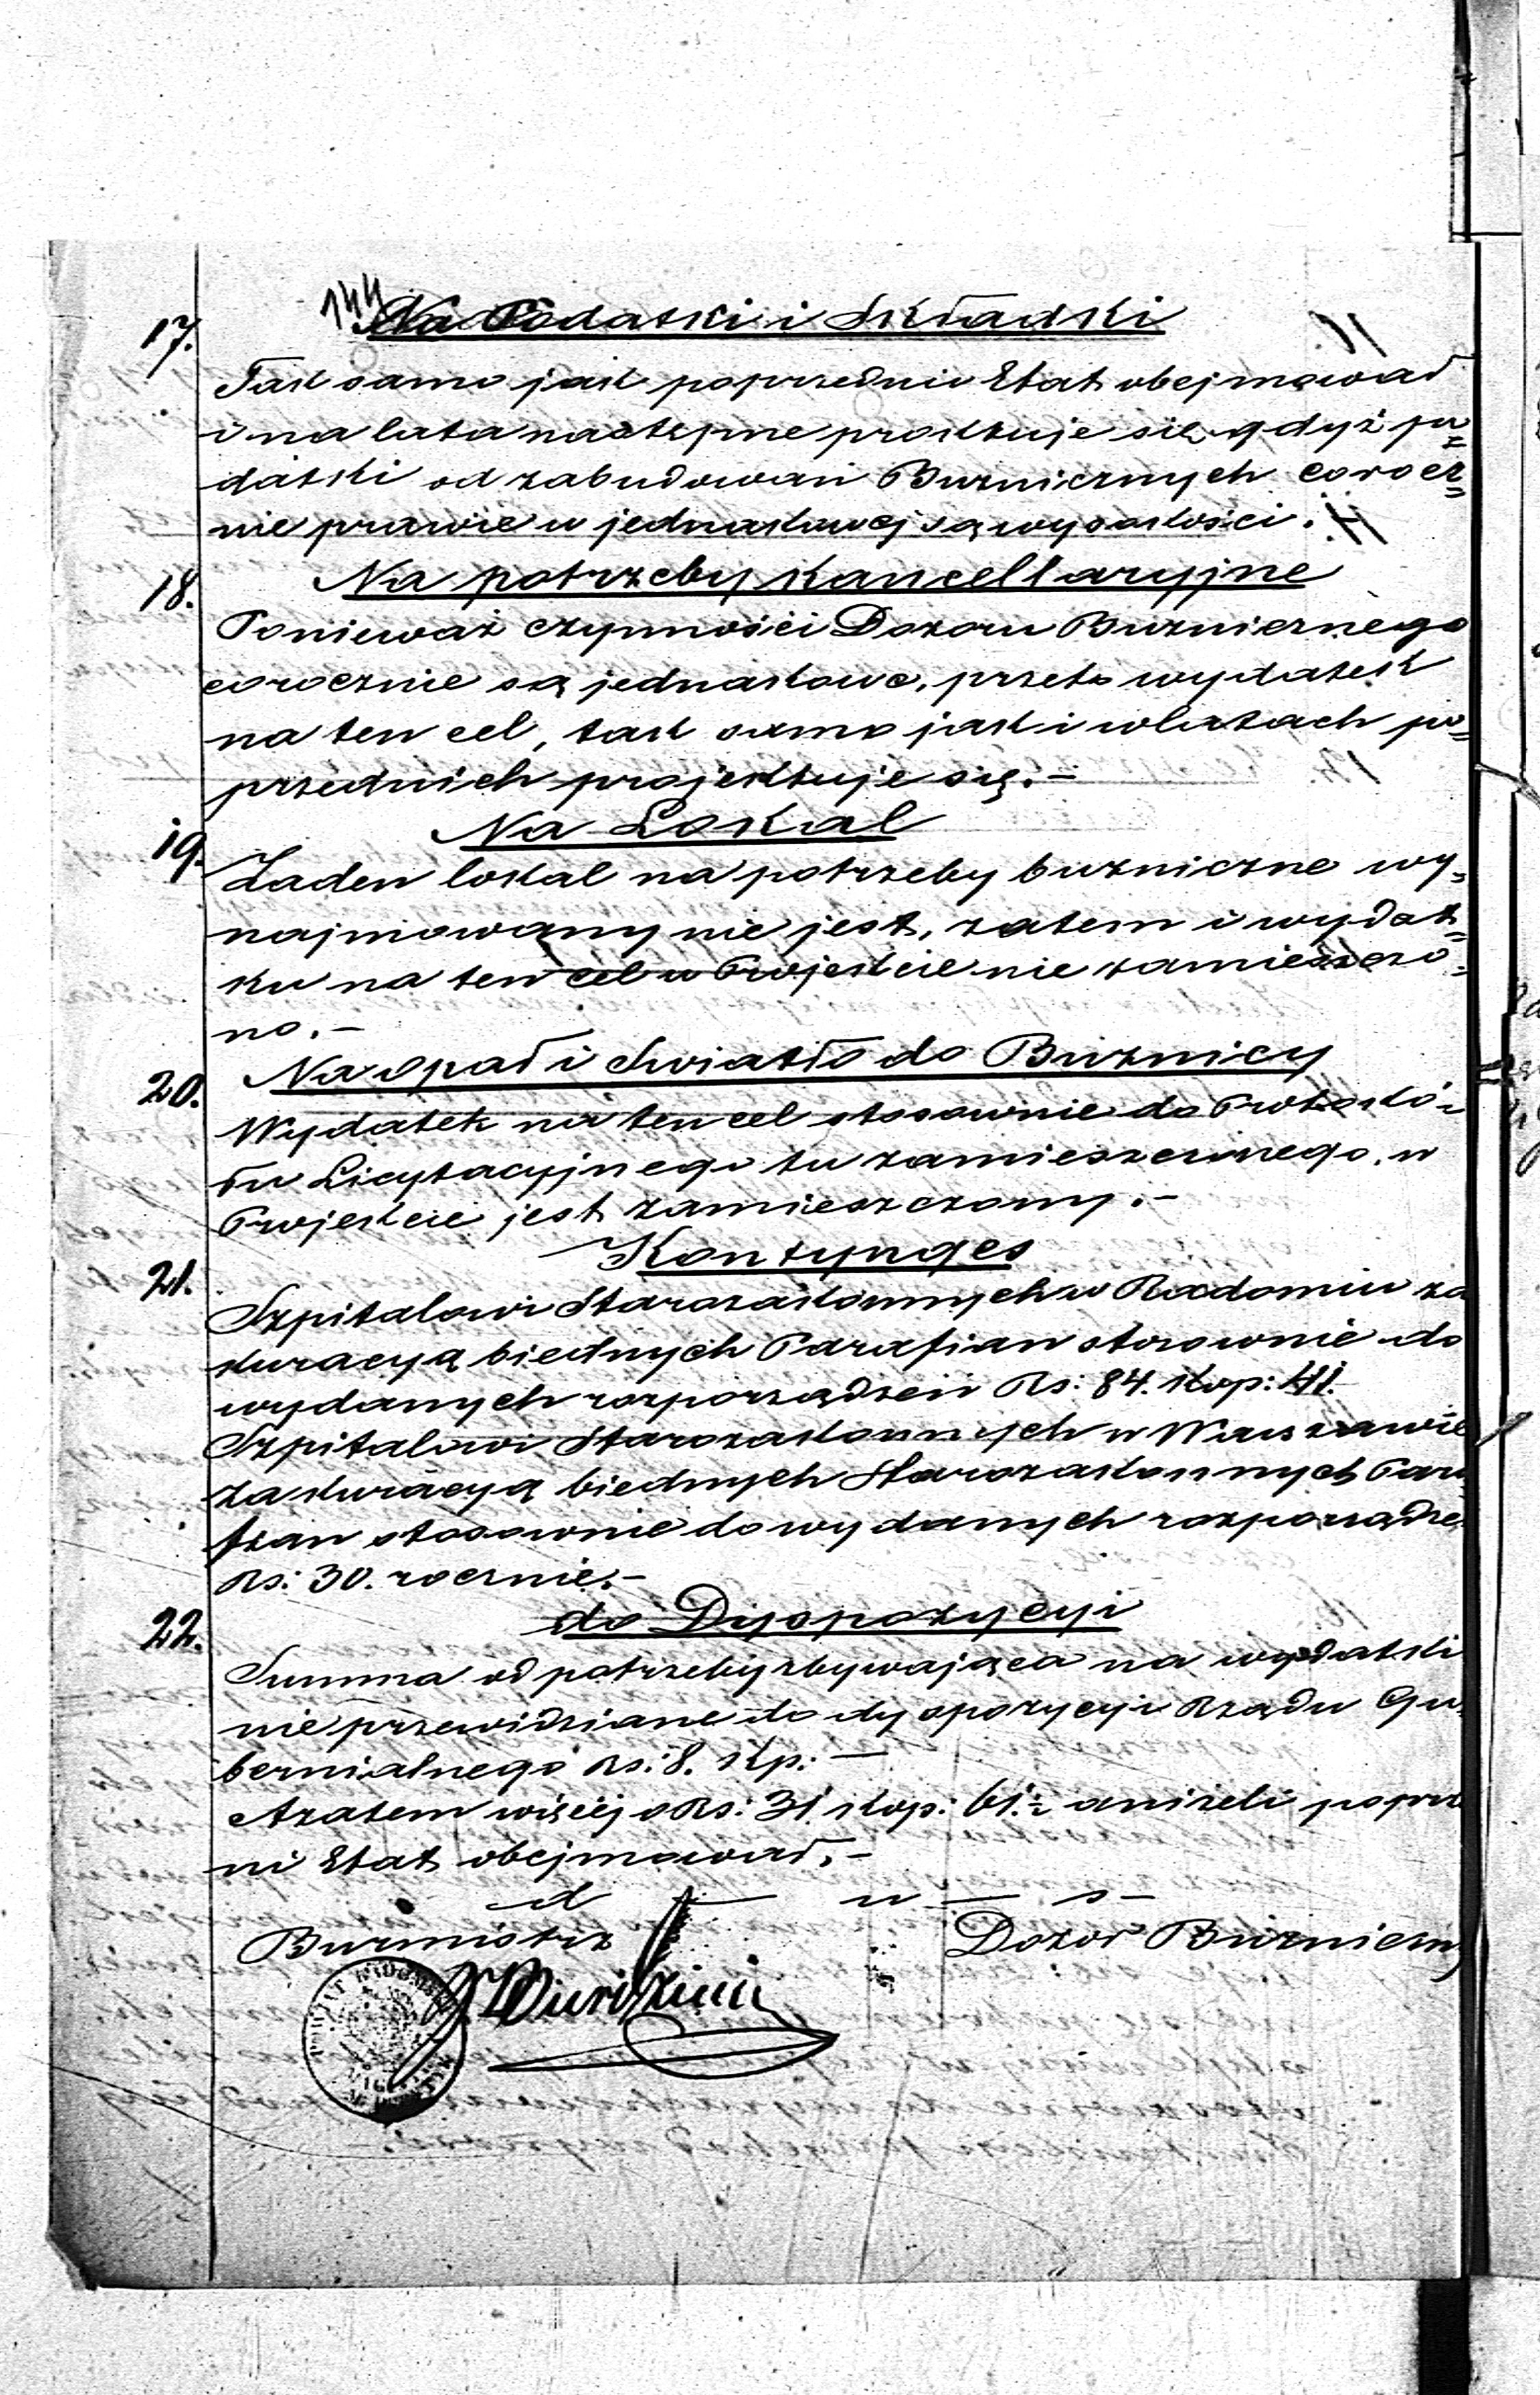 144
17. Na Podatki i Składki
Tak samo jak poprzednio Etat obejmował
i na lata następne projektuje się gdyż po=
datki od zabudowań Bużnicznych corocz=
nie prawie w jednakowej są wysokości.
18. Na potrzeby Kancellaryjne
Ponieważ czynności Dozoru Bużnicznego
corocznie są jednakowe, przeto wydatek
na ten cel, tak samo jak i w latach po=
przednich projektuje się.—
19. Na Lokal
Żaden lokal na potrzeby bużniczne wy=
najmowany nie jest, zatem i wydat=
ku na ten cel w Projekcie nie zamieszczo=
no.—
20. Na opał i Swiatło do Bużnicy
Wydatek na ten cel stosownie do Protokó=
łu Licytacyjnego tu zamieszczonego, w
Projekcie jest zamieszczony.—
21. Kontynges
Szpitalowi Starozakonnych w Radomiu za
kuracyą biednych Parafian stosownie do
wydanych rozporządzeń Rs: 84. Kop: 41.
Szpitalowi Starozakonnych w Warszawie
za kuracyą biednych Starozakonnych Para
fian stosownie do wydanych rozporządze
Rs: 30. rocznie.—
22. do Dyspozycyi
Summa od potrzeby zbywająca na wydatki
nie przewidziane do dyspozycyi Rządu Gu=
bernialnego Rs: 8. Kp: —
A zatem więcej o Rs: 31 Kop: 61½ aniżeli poprze
ni Etat obejmował.—
d — u — s —
Burmistrz Dozór Bużniczny